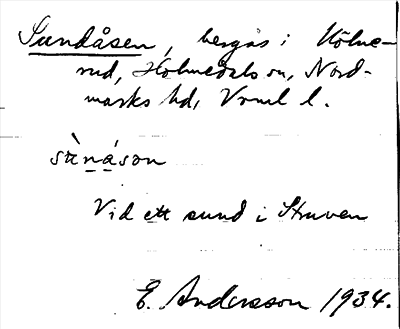 Sundåsen, bergås i Kölne-
rud, Holmedals sn, Nord-
marks hd, Vrml l.
sùnåson
Vid ett sund i Struven
E. Andersson 1934.